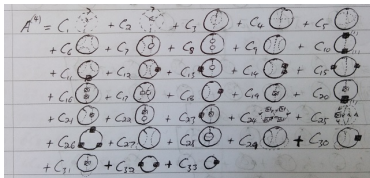 A⁽⁴⁾ = C₁ + C₂ + C₃ + C₄ + C₅
+ C₆ + C₇ + C₈ + C₉ + C₁₀
+ C₁₁ + C₁₂ + C₁₃ + C₁₄ + C₁₅
+ C₁₆ + C₁₇ + C₁₈ + C₁₉ + C₂₀
+ C₂₁ + C₂₂ + C₂₃ + C₂₄ + C₂₅
+ C₂₆ + C₂₇ + C₂₈ + C₂₉ + C₃₀
+ C₃₁ + C₃₂ + C₃₃